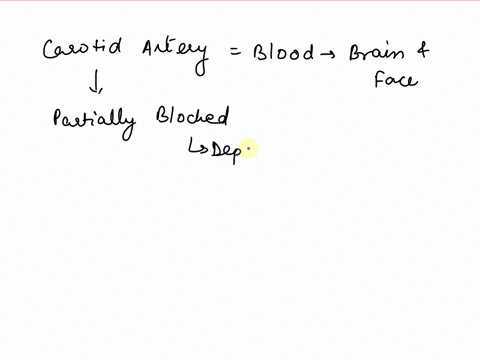 Carotid Artery = Blood → Brain &
Face
↓
Partially Blocked
↳ Dep